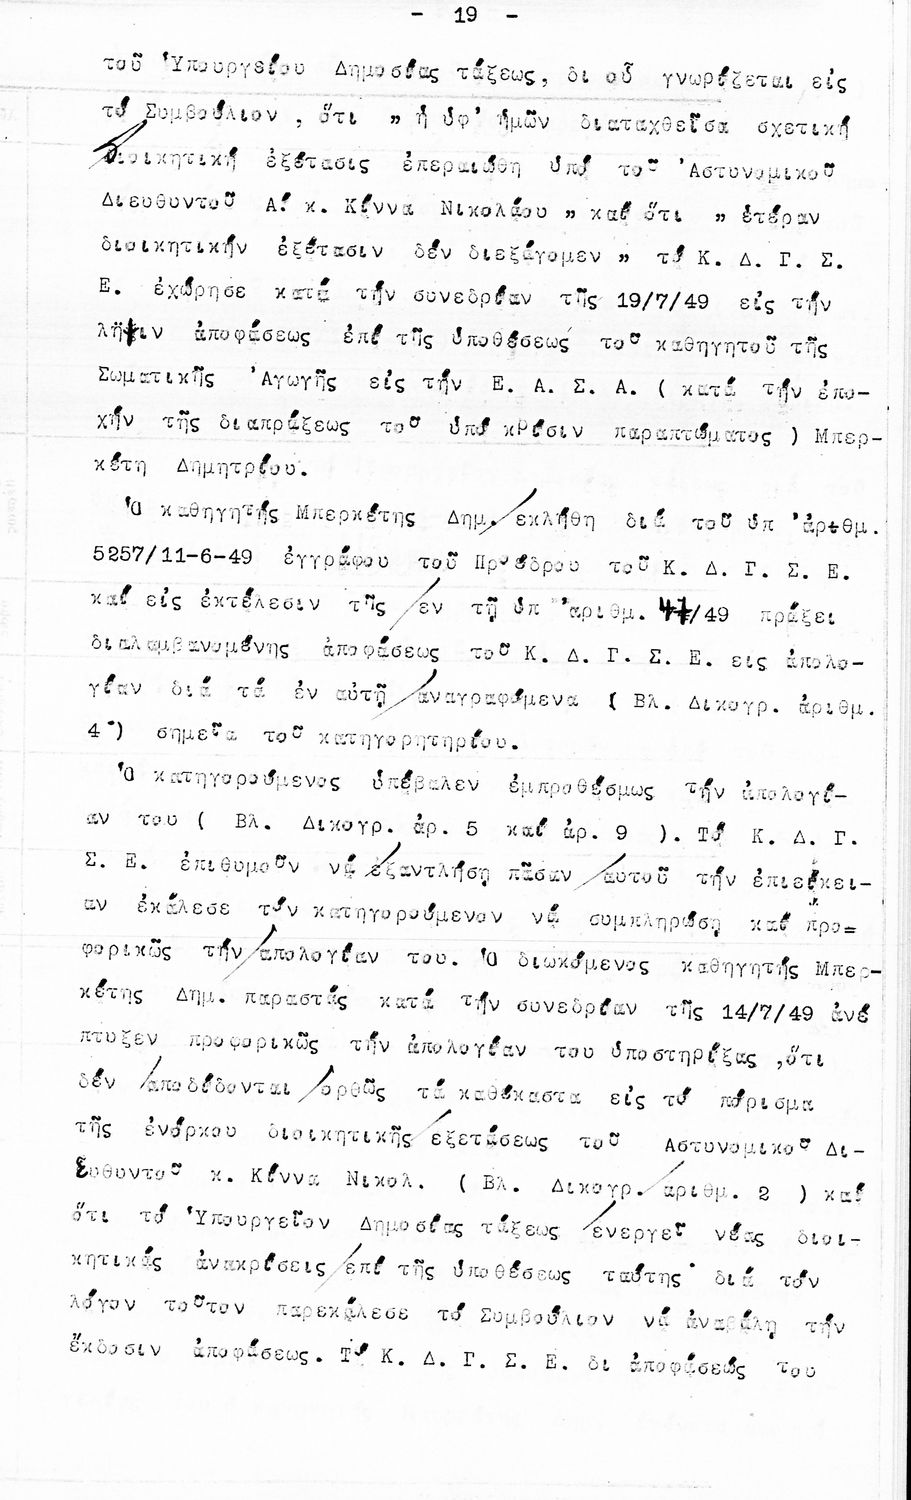 - 19 -
τοῦ Ὑπουργείου Δημοσίας τάξεως, δι οὗ γνωρίζεται εἰς
τό Συμβούλιον , ὅτι " ἡ ὑφ' ἡμῶν διαταχθεῖσα σχετική
διοικητική ἐξέτασις ἐπεραιώθη ὑπό τοῦ 'Αστυνομικοῦ
Διευθυντοῦ Α! κ. Κίννα Νικολάου " καί ὅτι " ἑτέραν
διοικητικήν ἐξέτασιν δέν διεξάγομεν " τό Κ. Δ. Γ. Σ.
Ε. ἐχώρησε κατά τήν συνεδρίαν τῆς 19/7/49 εἰς τήν
λῆψιν ἀποφάσεως ἐπί τῆς ὑποθέσεως τοῦ καθηγητοῦ τῆς
Σωματικῆς 'Αγωγῆς εἰς τήν Ε. Α. Σ. Α. ( κατά τήν ἐπο-
χήν τῆς διαπράξεως τοῦ ὑπό κρίσιν παραπτώματος ) Μπερ-
κέτη Δημητρίου.
Ὁ καθηγητής Μπερκέτης Δημ. εκλήθη διά τοῦ ὑπ 'ἀριθμ.
5257/11-6-49 ἐγγράφου τοῦ Προέδρου τοῦ Κ. Δ. Γ. Σ. Ε.
καί εἰς ἐκτέλεσιν τῆς εν τῇ ὑπ 'αριθμ. 47/49 πράξει
διαλαμβανομένης ἀποφάσεως τοῦ Κ. Δ. Γ. Σ. Ε. εις ἀπολο-
γίαν διά τά ἐν αὐτῇ αναγραφόμενα ( Βλ. Δικογρ. ἀριθμ.
4 ) σημεῖα τοῦ κατηγορητηρίου.
Ὁ κατηγορούμενος ὑπέβαλεν ἐμπροθέσμως τήν ἀπολογί-
αν του ( Βλ. Δικογρ. ἀρ. 5 καί ἀρ. 9 ). Τό Κ. Δ. Γ.
Σ. Ε. ἐπιθυμοῦν νά ἐξαντλήσῃ πᾶσαν αυτοῦ τήν ἐπιείκει-
αν ἐκάλεσε τόν κατηγορούμενον νά συμπληρώσῃ καί προ=
φορικῶς τήν απολογίαν του. Ὁ διωκόμενος καθηγητής Μπερ-
κέτης Δημ. παραστάς κατά τήν συνεδρίαν τῆς 14/7/49 ἀνέ
πτυξεν προφορικῶς τήν ἀπολογίαν του ὑποστηρίξας ,ὅτι
δέν αποδίδονται ορθῶς τά καθέκαστα εἰς τό πόρισμα
τῆς ἐνόρκου διοικητικῆς εξετάσεως τοῦ Αστυνομικοῦ Δι-
ευθυντοῦ κ. Κίννα Νικολ. ( Βλ. Δικογρ. αριθμ. 2 ) καί
ὅτι τό Ὑπουργεῖον Δημοσίας τάξεως ενεργεῖ νέας διοι-
κητικάς ἀνακρίσεις επί τῆς ὑποθέσεως ταύτης · διά τόν
λόγον τοῦτον παρεκάλεσε τό Συμβούλιον νά ἀναβάλῃ τήν
ἔκδοσιν ἀποφάσεως. Τό Κ. Δ. Γ. Σ. Ε. δι ἀποφάσεώς του